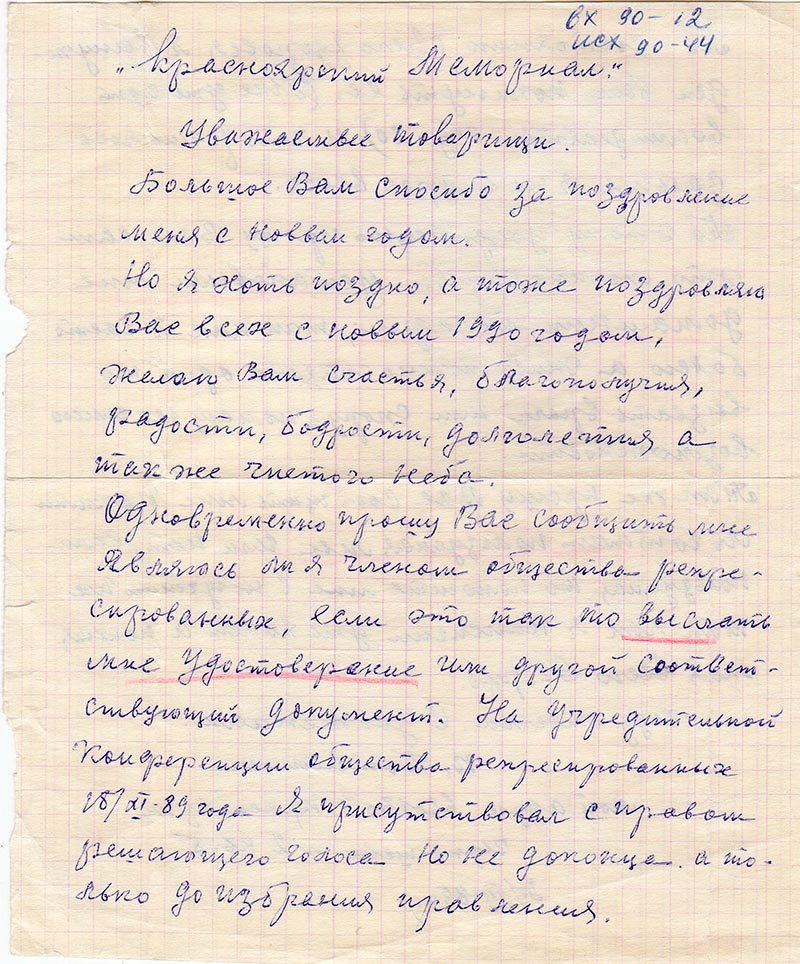 вх 90-12
исх 90-44
„Красноярский Мемориал."
Уважаемые товарищи.
Большое Вам спосибо за поздровление
меня с новым годом.
Но я хоть поздно, а тоже поздровляю
Вас всех с новым 1990 годом,
желаю Вам счастья, благополучия,
радости, бодрости, долголетия а
так же чистого неба.
Одновременно прошу Вас сообщить мне
являюсь ли я членом общества репре-
сированных, если это так то выслать
мне удостоверание или другой соответ-
ствующий документ. На учредительной
конференции общества репресированных
18/XI-89 года я присутствовал с правом
решающего голоса но не доконца. а то-
лько до избрания правления.